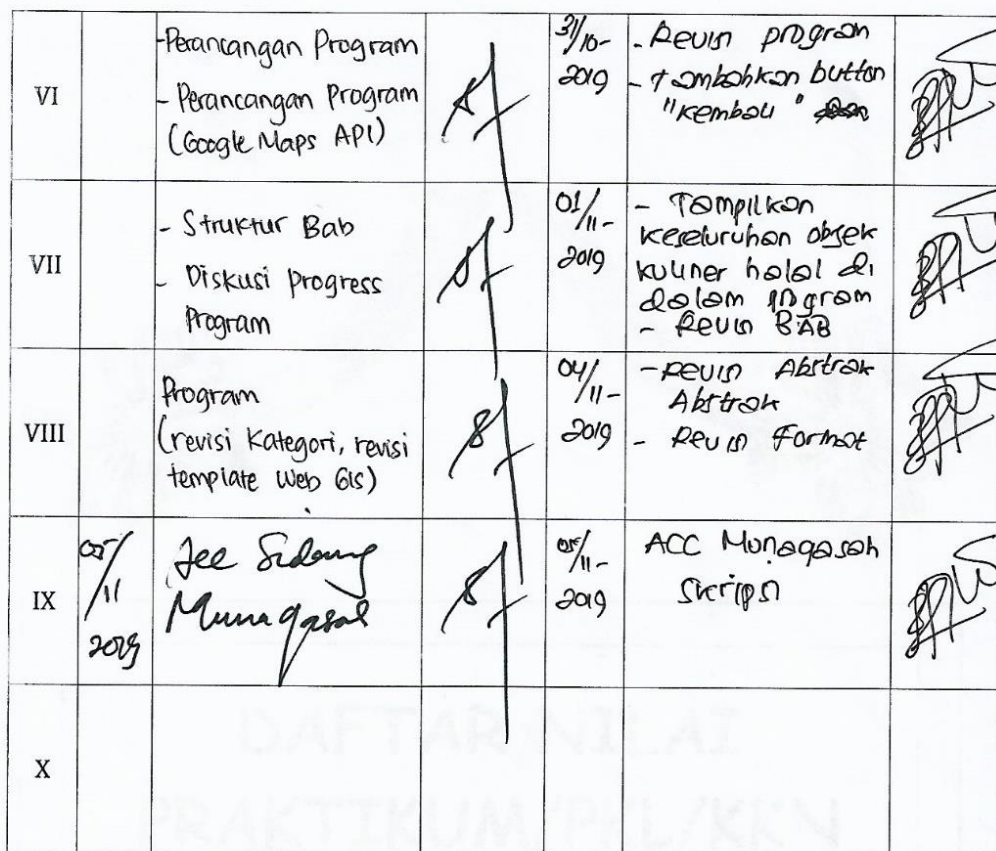 VI
-Perancangan Program
- Perancangan Program
(Google Maps API)
31/10-
2019
- Revisi program
- Tambahkan button
"kembali"
VII
- Struktur Bab
- Diskusi Progress
Program
01/11-
2019
- Tampilkan
keseluruhan objek
kuliner halal di
dalam program
- Revisi BAB
VIII
Program
(revisi Kategori, revisi
template Web Gis)
04/11-
2019
- Revisi Abstrak
Abstrak
- Revisi Format
IX
05/11
2019
Acc Sidang
Munaqasah
05/11-
2019
ACC Munaqasah
Skripsi
X
DAFTAR NILAI
PRAKTIKUM/PKL/KKN